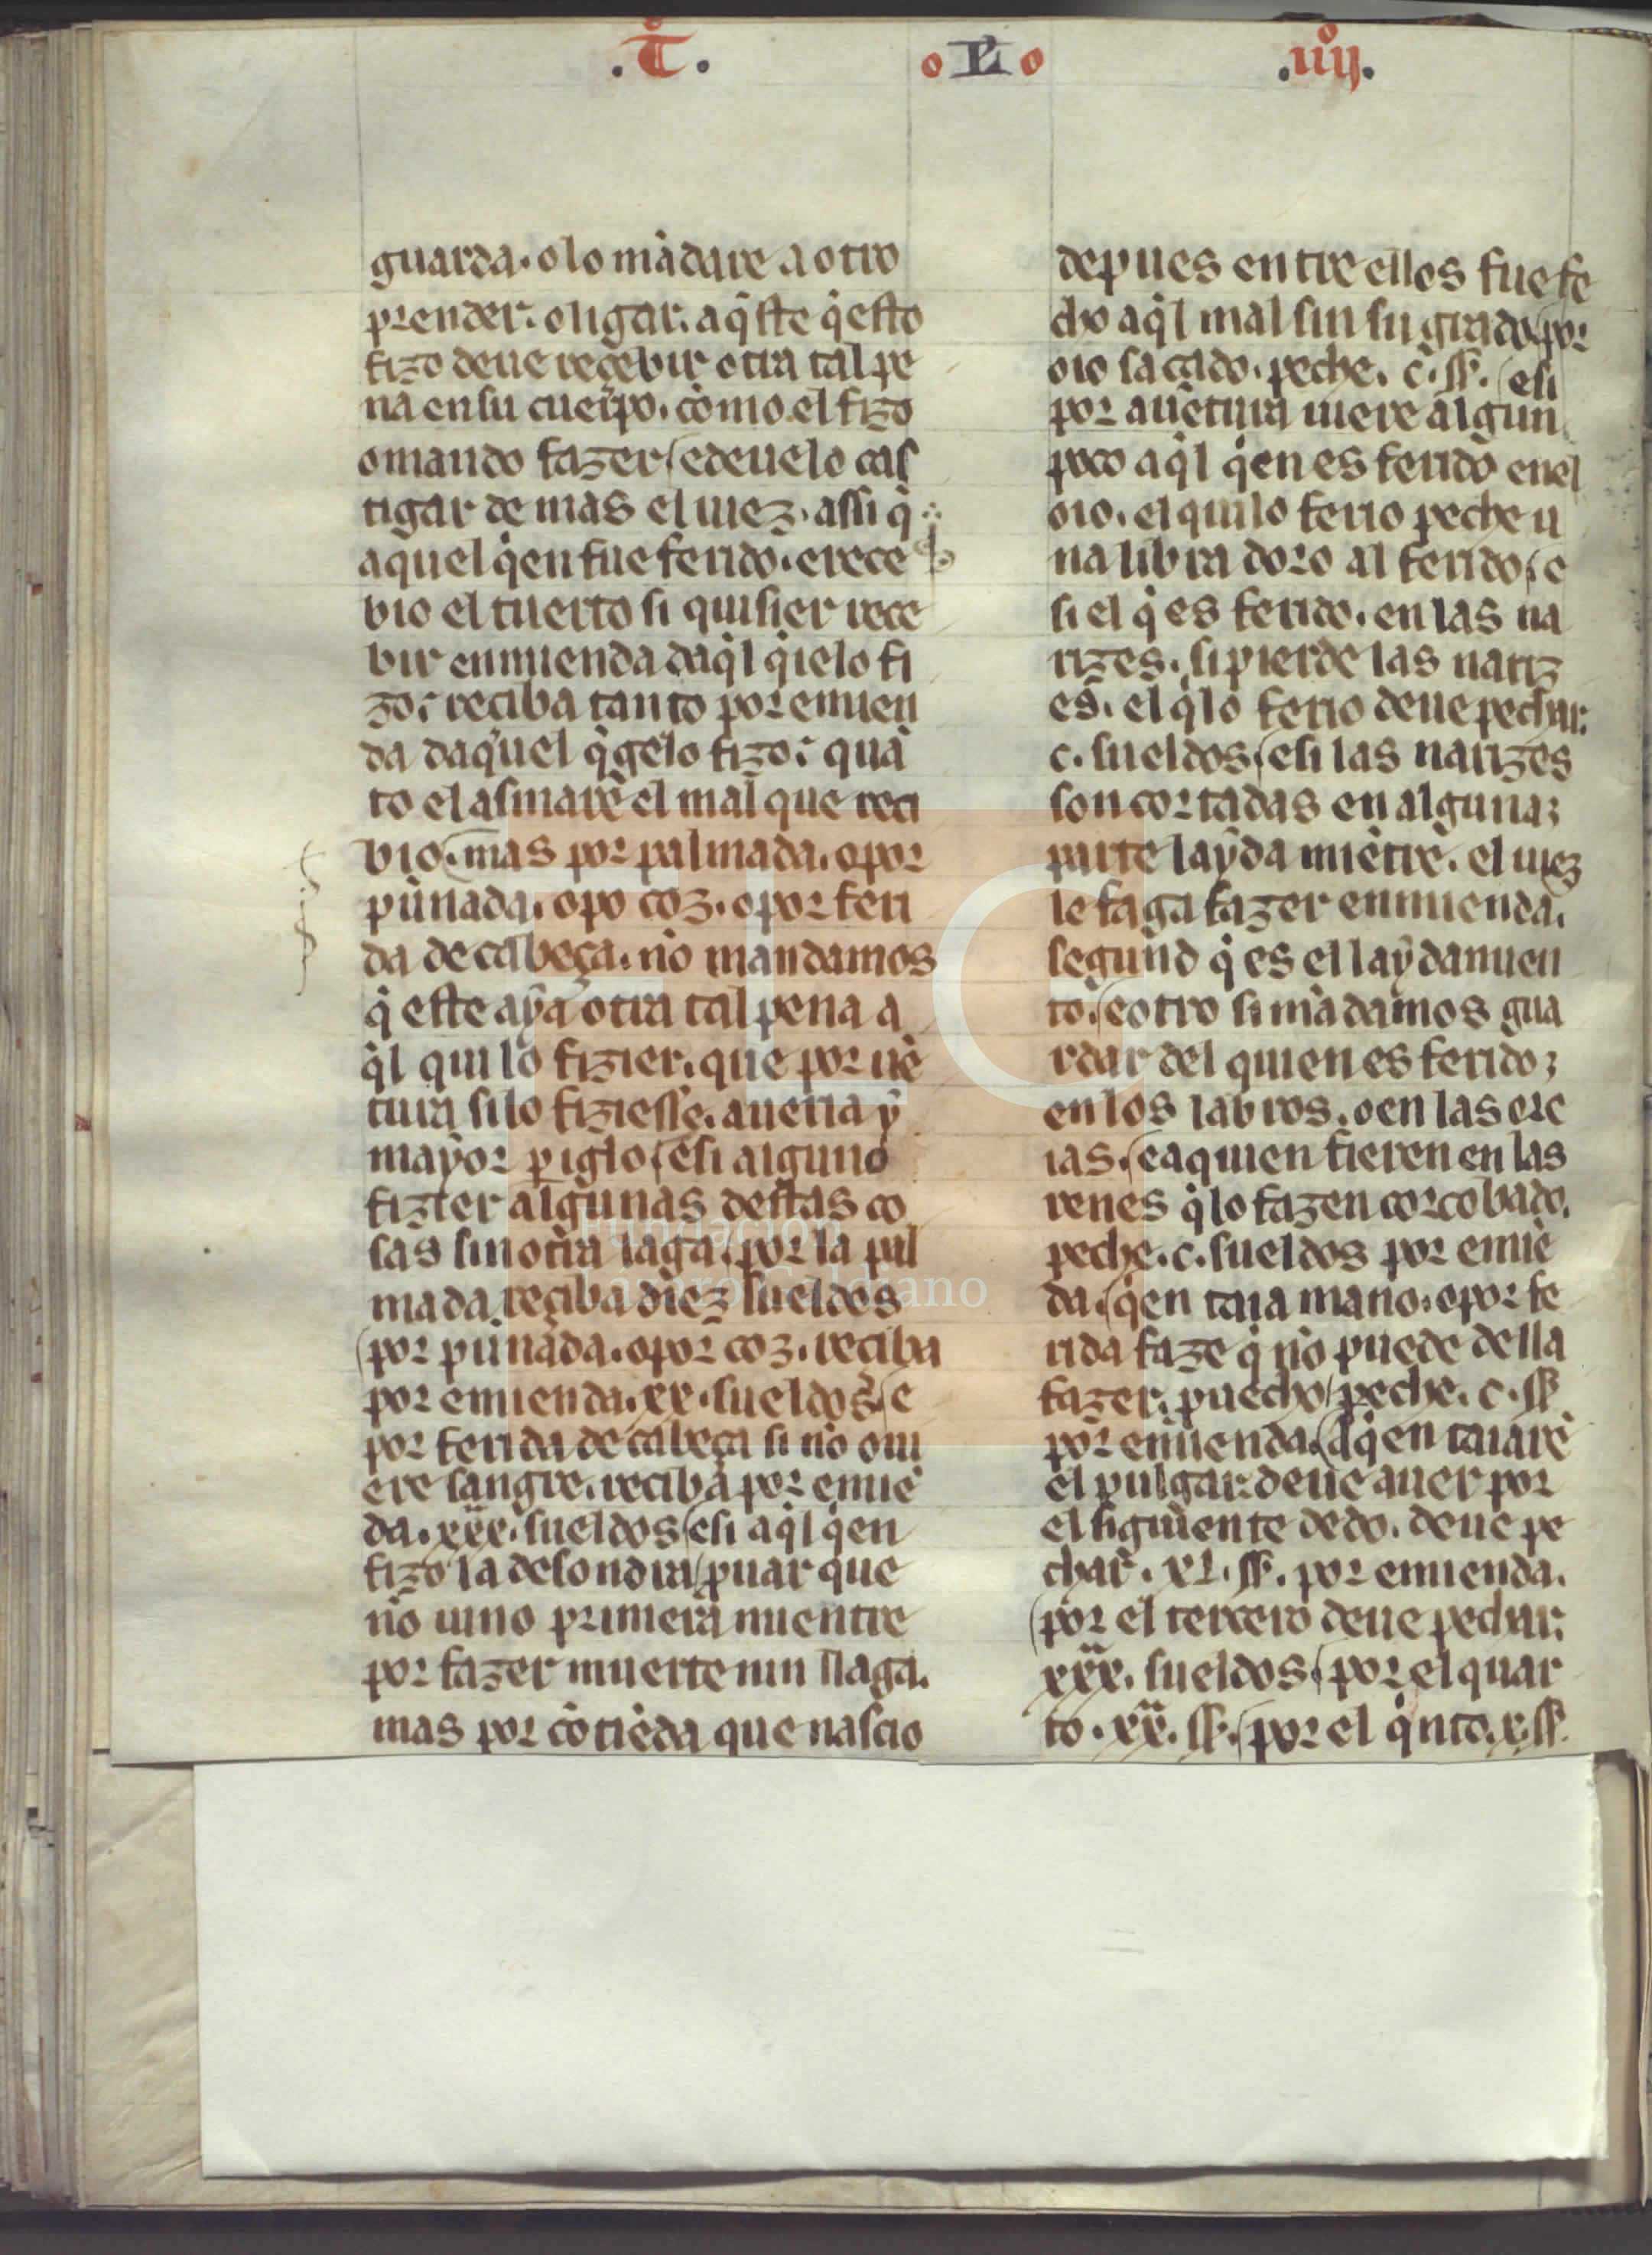 .T̊.
o L o
.iiij̊.
guarda. o lo mãdare a otro
prender. o ligar. a q̃ste q̃ esto
fizo deue reçebir otra tal pe
na en su cuerpo. como el fizo
o mando fazer. e deuelo cas
tigar de mas el iuez. assi q̃
aquel q̃en fue ferido. e rece
bio el tuerto si quisier rece
bir enmienda daq̃l q̃ ielo fi
zo: reciba tanto por emien
da daquel q̃ gelo fizo: quã
to el asmare el mal que reci
bio. mas por palmada. o por
punada. o po coz. o por feri
da de cabeça. no mandamos
q̃ este aya otra tal pena a
q̃l qui lo fizier. que por uẽ
tura si lo fiziesse. aueria y
mayor periglo. e si alguno
fizier algunas destas co
sas sin otra laga. por la pal
mada reçiba diez sueldos
por punada. o por coz. reciba
por emienda. xx. sueldos. e
por ferida de cabeça si no oui
ere sangre. reciba por emiẽ
da. xxx. sueldos. e si aq̃l q̃en
fizo la desondra. puar que
no uino primera mientre
por fazer muerte nin llaga.
mas por cõtiẽda que nascio
depues entre ellos fue fe
cho aq̃l mal sin su grado. por
oio sacado. peche. c. ss. e si
por auẽtura uiere algun
poco aq̃l q̃en es ferido en el
oio. el qui lo ferio peche u
na libra doro al ferido. e
si el q̃ es ferido. en las na
rizes. si pierde las nariz
es. el q̃ lo ferio deue pechar.
c. sueldos. e si las narizes
son cortadas en alguna
parte layda miẽtre. el iuez
le faga fazer enmienda.
segund q̃ es el laydamien
to. e otro si mãdamos gua
rdar del quien es ferido
en los labros. o en las ore
ias. e a quien fieren en las
renes q̃ lo fazen corcobado.
peche. c. sueldos por emiẽ
da. q̃en taia mano. o por fe
rida faze q̃ no puede della
fazer. puecho. peche. c. ss.
por emienda. a q̃en taiare
el pulgar. deue auer por
el siguiente dedo. deue pe
char. xl. ss. por emienda.
por el tercero deue pechar.
xxx. sueldos. por el quar
to. xx. ss. por el q̃nto. x. ss.
Fundación
Lázaro Galdiano